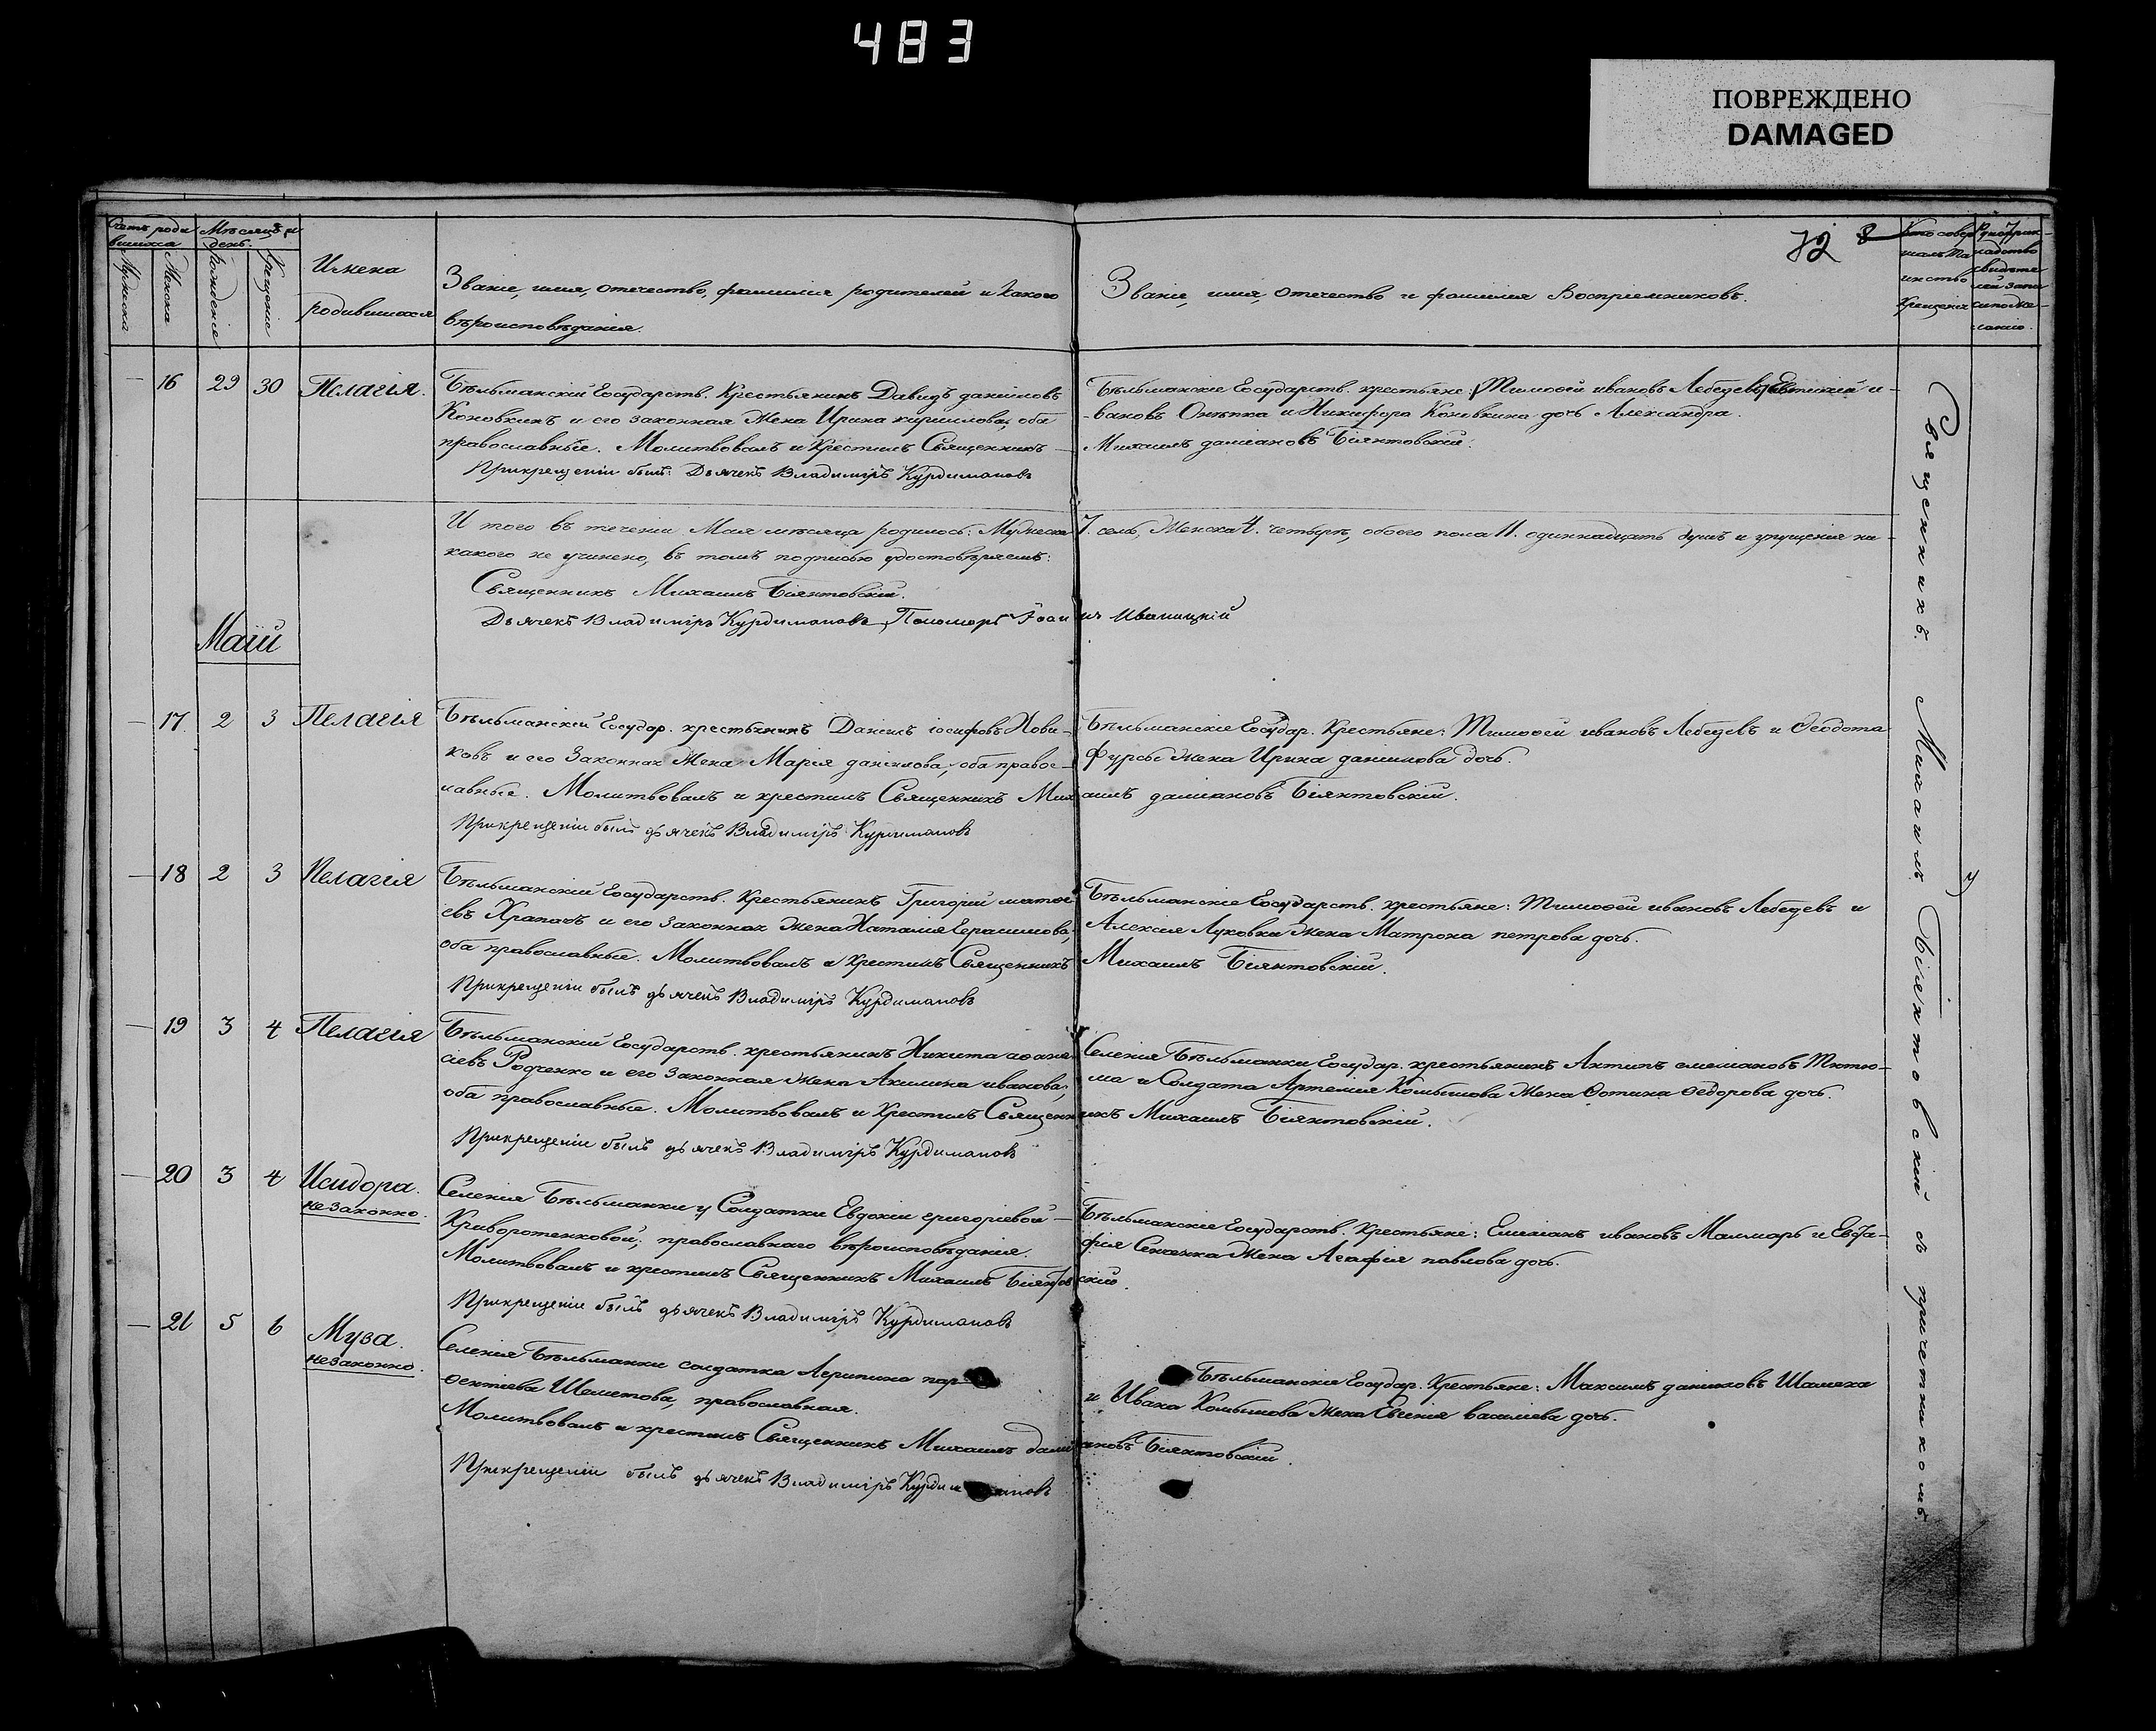 483
ПОВРЕЖДЕНО
DAMAGED
72
Счетъ роди
вшихся
Мѣсяцъ и
день.
Мужеска
Женска
Рожденіе
Крещеніе
Имена
родившихся
Званіе, имя, отечество, фамилія родителей и какого
вѣроисповѣданія.
Званіе, имя, отечество и фамилія Воспріемниковъ.
Кто совер
шалъ та
инство
Крещенія
16 29 30 Пелагія.
Бѣльманскій Государств. Крестьянинъ Давидъ даніиловъ
Коновкинъ и его законная Жена Ирина кирилова, оба
православные. Молитвовалъ и Крестилъ Священникъ
Прикрещеніи былъ: Дьячекъ Владиміръ Курдимановъ
Бѣльманскіе Государств. крестьяне: Тимофей ивановъ Лебедевъ, и-
вановъ и Никифора Коновкина дочь Александра.
Михаилъ даміановъ Біянтовскій.
И того въ теченіи Мая мѣсяца родилось: Мужеска 7. семь, Женска 4. четыре, обоего пола 11. одиннадцать душъ и упущенія ни-
какого не учинено, въ томъ подписью удостовѣряемъ:
Священникъ Михаилъ Біянтовскій.
Дьячекъ Владиміръ Курдимановъ, Пономарь Іоаннъ Иваницкій
Маій
17. 2 3 Пелагія
Бѣльманскій Государ. крестьянинъ Даніилъ іосифовъ Нови-
ковъ и его Законная Жена Марія даніилова, оба правос-
лавные. Молитвовалъ и крестилъ Священникъ Михаилъ даміановъ Біянтовскій.
Прикрещеніи былъ дьячекъ Владиміръ Курдимановъ
Бѣльманскіе Государ. Крестьяне: Тимофей ивановъ Лебедевъ и Феодота
Фурсы жена Ирина даніилова дочь.
18 2 3 Пелагія
Бѣльманскій Государств. Крестьянинъ Григорій матфе
евъ Храпачъ и его законная Жена Наталія Герасимова,
оба православные. Молитвовалъ и Крестилъ Священникъ
Прикрещеніи былъ дьячекъ Владиміръ Курдимановъ
Бѣльманскіе Государств. крестьяне: Тимофей ивановъ Лебедевъ и
Алексія Луковки Жена Матрона петрова дочь.
Михаилъ Біянтовскій.
19 3 4 Пелагія
Бѣльманскій Государств. крестьянинъ Никита афана
сіевъ Родченко и его законная Жена Акилина иванова,
оба православные. Молитвовалъ и Крестилъ Священникъ Михаилъ Біянтовскій.
Прикрещеніи былъ дьячекъ Владиміръ Курдимановъ
Селенія Бѣльманки Государ. крестьянинъ Антипъ Тютю-
ма и Солдата Артемія Комышова Жена Фотина Федорова дочь.
20 3 4 Исидора.
незаконно.
Селенія Бѣльманки у Солдатки Евдокіи григоріевой
Криворотенковой, православнаго вѣроисповѣданія.
Молитвовалъ и крестилъ Священникъ Михаилъ Біянтовскій.
Прикрещеніи былъ дьячекъ Владиміръ Курдимановъ
Бѣльманскіе Государств. Крестьяне: Емиліанъ ивановъ Маммарь и Евста-
фія Сенченка Жена Агафія павлова дочь.
21 5 6 Муза.
незаконно.
Селенія Бѣльманки солдатка Агрипина пар
фентіева Шеметова, православная.
Молитвовалъ и крестилъ Священникъ Михаилъ даміановъ Біянтовскій.
Прикрещеніи былъ дьячекъ Владиміръ Курдимановъ
Бѣльманскіе Государ. Крестьяне: Максимъ даниловъ Шамека
и Ивана Комышова Жена Евгенія василіева дочь.
Священникъ Михаилъ Біянтовскій съ причетникомъ.